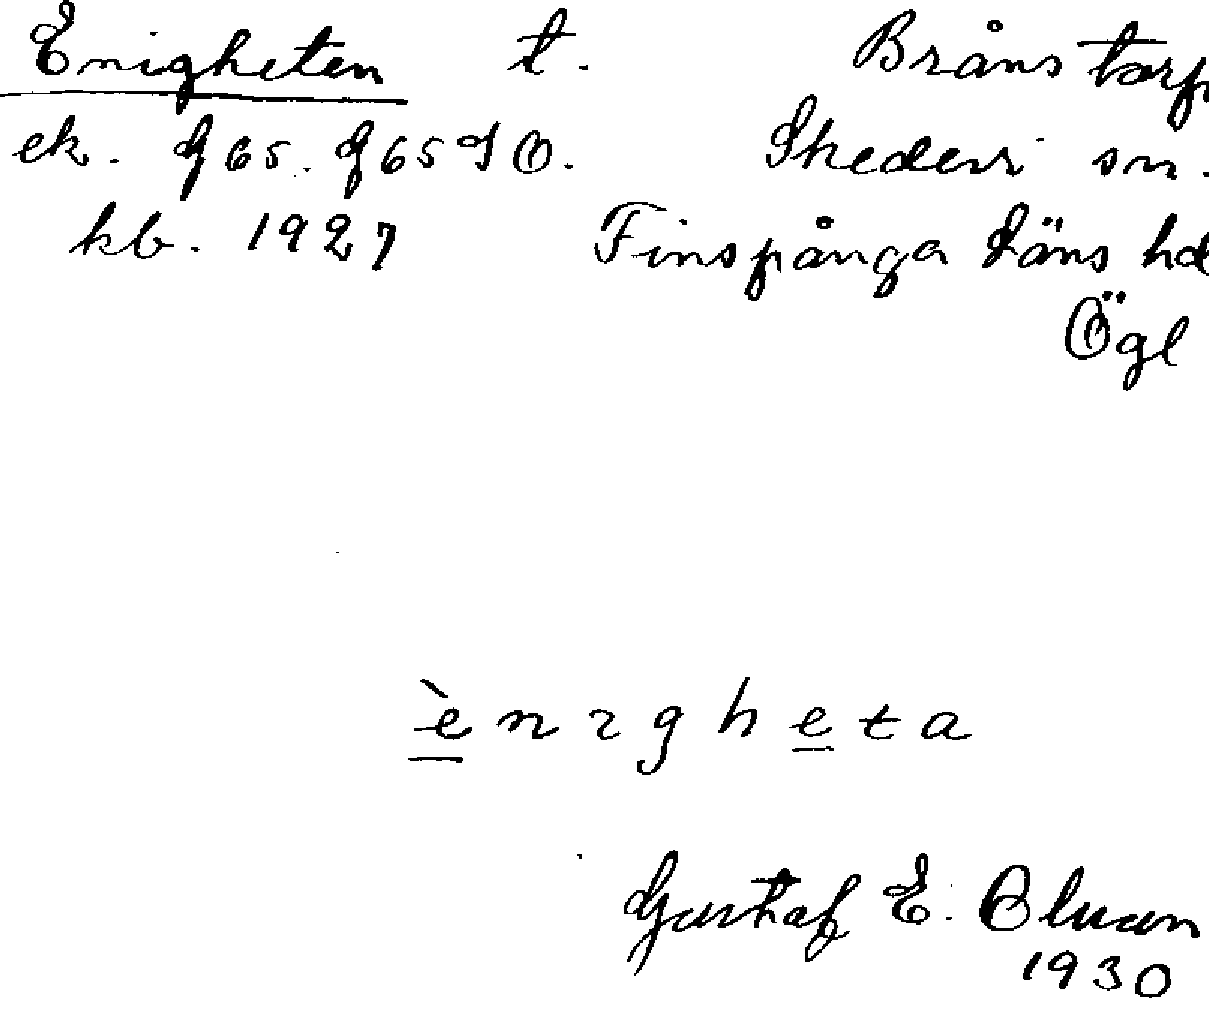 Enigheten t. Bråns torp
ek. G65. G65 SO. Skedevi sn.
kb. 1927 Finspånga läns hd
Ögl
è n ı g h e t a
Gustaf E.
1930